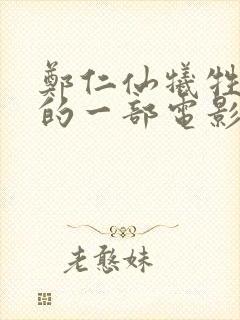 鄭仁仙犧牲
的一部電影
老憨妹